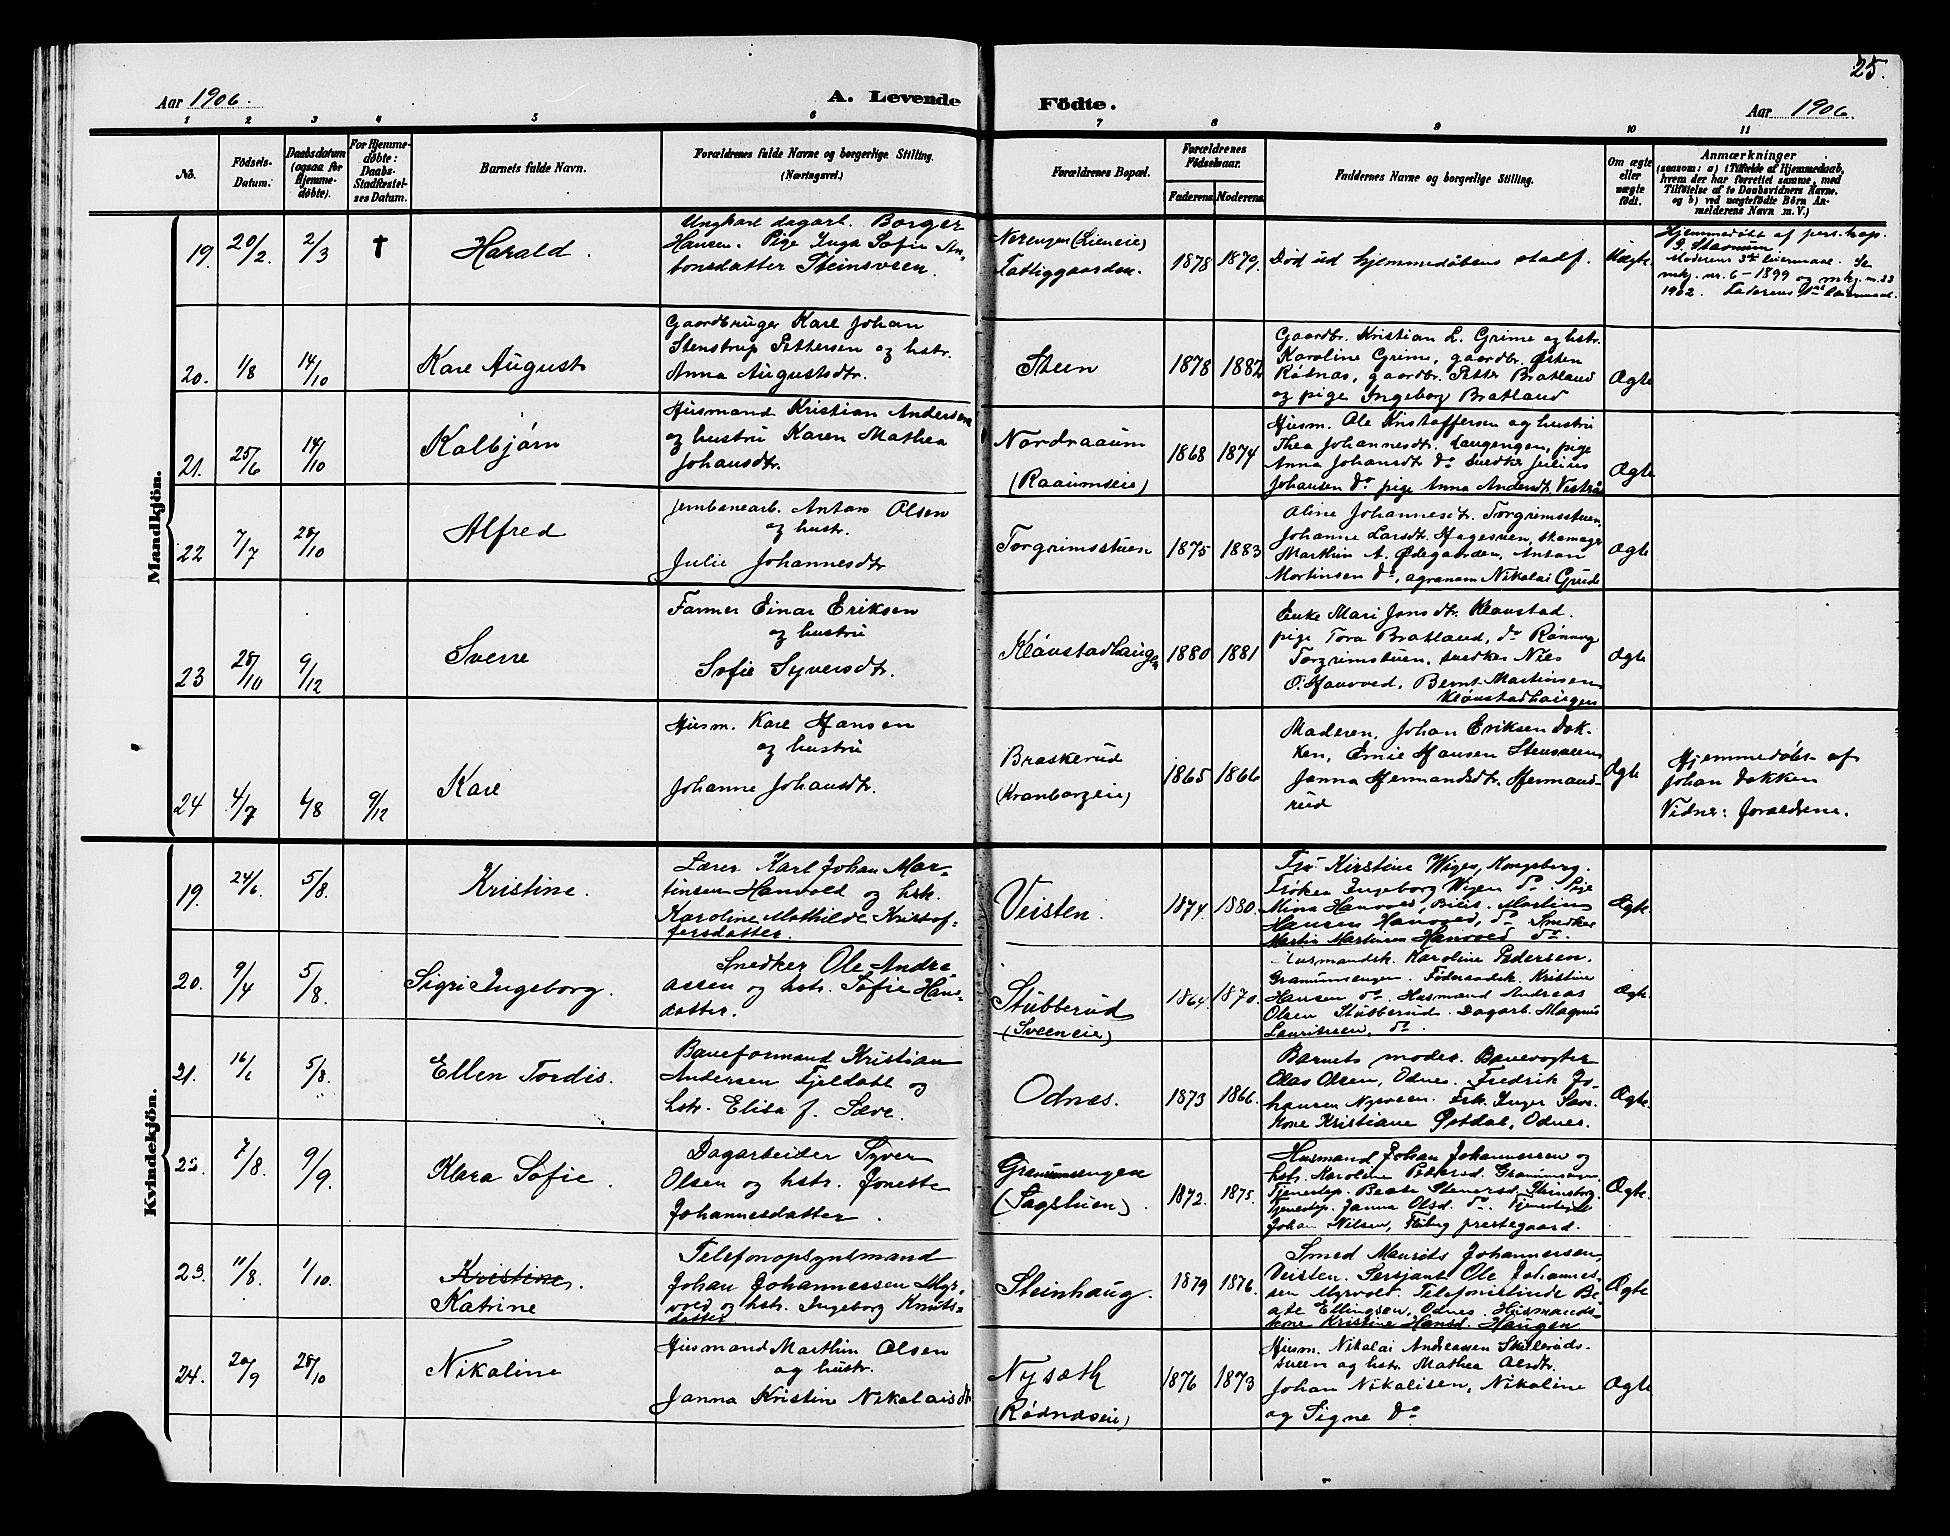 25.
Aar 1906.
A. Levende Födte.
Aar 1906.
1 2 3 4 5 6 7 8 9 10 11
No.
Födsels-Datum.
Daabsdatum (ogsaa for Hjemmedøbte).
For Hjemmedøbte: Daabs-Stadfæstelses Datum.
Barnets fulde Navn.
Forældrenes fulde Navne og borgerlige Stilling.
(Næringsvei.)
Forældrenes Bopæl.
Forældrenes Födselsaar.
Faderens. Moderens.
Faddernes Navne og borgerlige Stilling.
Om ægte eller uægte født.
Anmærkninger
(saasom: a) i Tilfælde af Hjemmedaab, hvem der har forrettet samme, med Tilføielse af to Daabsvidners Navne, og b) ved uægtefødte Börn Anmelderens Navn m. V.)
Mandkjön.
19. 20/2 2/3 †
Harald.
Ungkarl dagarb. Borger
Hansen. Pige Inga Sofie An-
tonsdatter Steinsveen.
Nerengen (Lieneie)
Fattiggaarden.
1878 1879.
Død ud hjemmedøbens stadf.
Uægte
Hjemmedøbt af pers. kap.
Moderens 3die leiermaal. Se
mkj. nr. 6 – 1899 og mkj. nr. 23
1902. Faderens leiermaal.
20. 1/8 14/10
Karl August
Gaardbruger Karl Johan
Stenstrup Pettersen og hstr.
Anna Augustsdtr.
Steen
1878 1882
Gaardbr. Kristian L. Grime og hstr.
Karoline Grime, gaardbr. Østen
Rødnæs, gaardbr. Petter Bratland
og pige Ingeborg Bratland
Ægte
21. 25/6 14/10
Kolbjørn
Husmand Kristian Andersen
og hustru Karen Mathea
Johansdtr.
Nordraaum
(Raaumseie)
1868 1874
Husm. Ole Kristoffersen og hustru
Thea Johannesdtr. Haugengen, pige
Anna Johansdtr do snedker Julius
Johansen do pige Anna Andersdtr.
Ægte
22 7/7 28/10
Alfred
Jernbanearb. Anton Olsen
og hustr.
Julie Johannesdtr
Torgrimsstuen
1875 1883
Oline Johannesdtr. Torgrimsstuen,
Johanne Larsdtr. Hagesveen, skomager
Marthin A. Ødegaarden, Anton
Mortinsen do, agronom Nikolai Grude
Ægte
23 28/10 9/12
Sverre
Farmer Einar Eriksen
og hustru
Sofie Syversdtr.
Kløvstadhaugen
1880 1881
Enke Mari Jonsdtr. Kløvstad.
pige Tora Bratland, do Rønnaug
Torgrimstuen, snedker Nils
O. Hanvold, Bernt Martinsen
Kløvstadhaugen
Ægte
24 4/7 6/8 9/12
Karl
Husm. Karl Hansen
og hustru
Johanne Johansdtr.
Braskerud
(Kranborgeie)
1865 1866
Moderen, Johan Eriksen Dok-
ken, Emil Hansen
Janna Hermandsdtr. Hermand-
rud
Ægte
Hjemmedøbt af
Johan Dokken
Vidner: forældrene.
Kvindekjön.
19. 24/6 5/8.
Kristine.
Lærer Karl Johan Mar-
tinsen Hanvold og hstr.
Karoline Mathilde Kristof-
fersdatter.
Veisten.
1874. 1880.
Fru Kirstine Wiger, Kongsberg.
Frøken Ingeborg Wigen do. Pige
Mina Hanvold, Martin
Hansen Hanvold, do. Snedker
Martin Martinsen Hanvold do.
Ægte
20. 9/4 5/8.
Sigri Ingeborg.
Snedker Ole Andre-
assen og hstr. Sofie Hans-
datter.
Stubberud
(Sveeneie)
1864. 1870.
Husmandsk. Karoline Pedersen.
Granumsengen. Føderaadsk. Kristine
Hansen do. Husmand Andreas
Olsen Stubberud. Dagarb. Magnus
Lauritzen, do.
Ægte.
21. 16/6 5/8.
Ellen Tordis.
Baneformand Kristian
Andersen Fjeldall og
hstr. Elisa f. Sæve.
Odnæs.
1873 1866.
Barnets moder. Banevogter
Olas Olsen, Odnes. Fredrik Jo-
hansen Nysveen. Frk. Inger Sæve.
Kone Kristiane Østdal, Odnes.
Ægte.
22. 7/8. 9/9.
Klara Sofie.
Dagarbeider Syver
Olsen og hstr. Jonette
Johannesdatter.
Granumsengen
(Sagstuen).
1872. 1875.
Husmand Johan Johannessen og
hstr. Karoline Pedersd. Granumsen.
Tjenestep. Beate Stenersd. Steinsborg.
Tjenestep. Janna Olsd. do. Tjenestegut
Johan Nilsen, Fluberg prestegaard.
Ægte.
23. 11/8. 1/10.
Kristine.
Katrine
Telefonopsynsmand
Johan Johannessen Myr-
vold og hstr. Ingeborg Knuts-
datter
Steinhaug.
1879 1876.
Smed Maurits Johannessen,
Veisten. Sersjant Ole Johannes-
sen Myrvold. Telefonistinde Be-
ate Ellingsen, Odnes. Husmands-
kone Kristine Hansd. Haugen
Ægte
24. 20/9 28/10
Nikoline
Husmand Marthin Olsen
og hustr.
Janna Kristine Nikolaisdtr
Nysæth
(Rødnæseie)
1876 1873
Husm. Nikolai Andreassen Skiklerøds-
sveen og hstr. Mathea Olsdtr.
Johan Nikolisen, Nikoline
og Signe do
Ægte